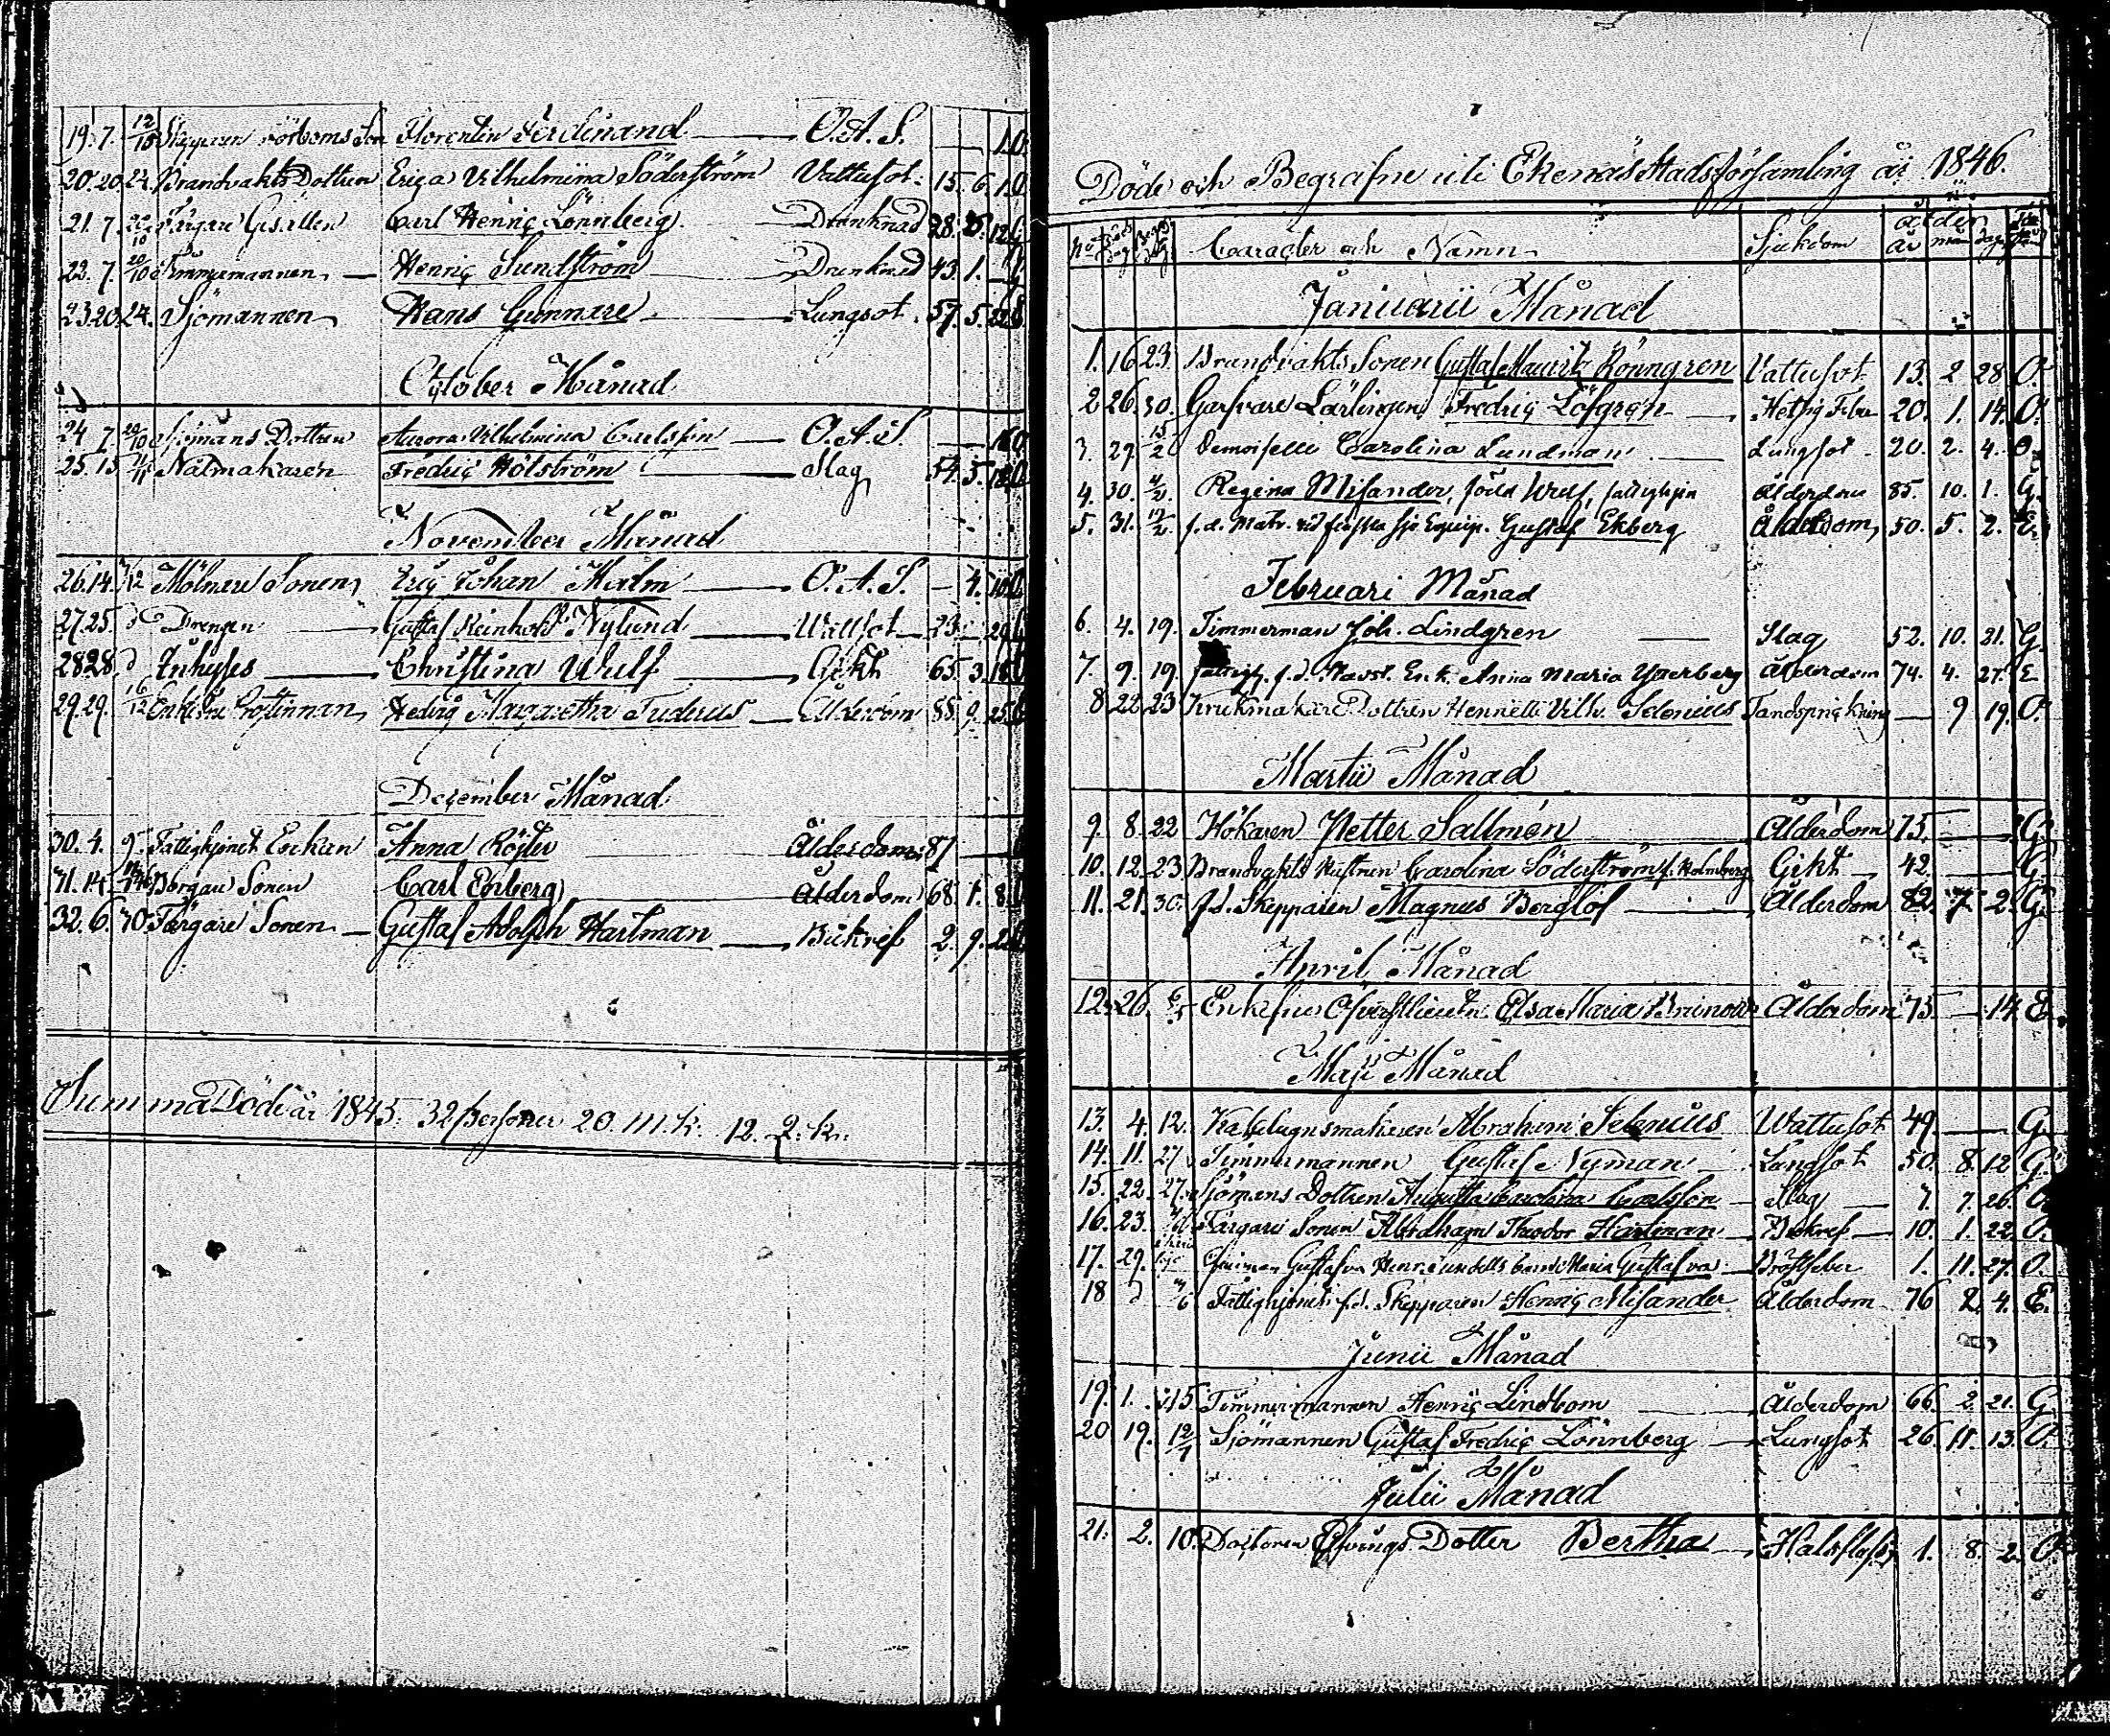 19. 7. 12/10 Skepparen Sonen Florentin Ferdinand O.A.S. 10.
20. 20. 24. Brandvakts Dottren Erica Vilhelmina Söderström Vattusot. 15. 6. 1. O.
21. 7. Färgare Gesällen Carl Henric Lönnberg Drunknad 28. 12. G
22. 7. 20/10 Timmermannen Henric Sundström Drunknad 43. 1.
23. 20. 24. Sjömannen Hans Gunnare Lungsot. 57. 5. 22
October Månad
24 7. 20/10 Sjömans Dottren Aurora Vilhelmina Carlsson O.A.S.
25. 15 Nålmakaren Fredric Hölström Slag 54. 5. 18.
November Månad
26. 14. 7/12 Mölnare Sonen Eric Johan Malm O.A.S. 4. 10
27. 25. d Drengen Gustaf Reinhold Nylund Wattsot 23. 29
28. 28. d Inhyses Christina Wulf Gikt 65. 3. 18
29. 29. Enkefru Margaretha Fuderus Ålderdom 88. 9. 25
December Månad
30. 4. 9. Fattighjonet Enkan Anna Röjter Ålderdom 87
31. 14. Borgare Sonen Carl Enberg Ålderdom 68. 1. 8.
32. 6. 30. Färgare Sonen Gustaf Adolph Hartman Bukref 2. 9.
Summa Döde år 1845. 32 Personer 20. M.k. 12. Q.kn.
Döde och Begrafne uti Ekenäs Stads församling år 1846.
No Caracter och Namn Sjukdom Ålder
år mån dag
Januarii Månad
1. 16 23. Brandvakts Sonen Gustaf Mauritz Rönngren Vattusot 13. 2 28. O.
2 26. 30. Garfvare Lärlingen Fredric Löfgren Hetsig Feber 20. 1. 14. O.
3. 29. 15/2 Demoiselle Carolina Lundman Lungsot 20. 2. 4. O.
4. 30. Regina Misander, född Wulf, fattighjon Ålderdom 85. 10. 1. G.
5. 31. f.d. Matr. vid finska sjö Equip. Gustaf Ekberg Ålderdom, 50. 5. 2. E.
Februari Månad
6. 4. 19. Timmerman Joh. Lindgren Slag 52. 10. 21. G.
7. 9. 19. Fattigh. f.d. Enk. Anna Maria Ålderdom 74. 4. 27. E
8 22 23 Krukmakare Dottren Henriette Vilh. Selenius Tandsprickning 9 19. O.
Martii Månad
9. 8. 22 Hökaren Petter Sallmén Ålderdom 75. G.
10. 12. 23 Brandvakts Hustrun Carolina Söderström f. Holmberg Gikt 42. G.
11. 21. 30. f.d. Skepparen Magnus Berglöf Ålderdom 82. 7. 2. G.
April Månad
12. 26. Enkefru Öfverstlieutn. Elsa Maria Brunow Ålderdom 73 14. E.
Maji Månad
13. 4. 12. Kakelugnsmakaren Abraham Selenius Wattusot 49. G.
14. 11. 27 Timmermannen Gustaf Nyman Lungsot 50. 8. 12 G.
15. 22 27. Sjömans Dottren Augusta Carolina Carlsson Slag 7. 7. 26. O.
16. 23. Färgare Sonen Abraham Theodor Hartman Bukref 10. 1. 22. O.
17. 29. Maria Gustafva Bröstfeber 1. 11. 27. O.
18 d Fattighjonet f.d. Skepparen Henric Misander Ålderdom 76 2. 4. E.
Junii Månad
19. 1. 15 Timmermannen Henric Lindbom Ålderdom 66. 2. 21. G.
20 19. 12/7 Sjömannen Gustaf Fredric Lönnberg Lungsot 26. 11. 13. O.
Julii Månad
21. 2. 10. Doctoren Elfvings Dotter Bertha Halsfluss 1. 8. 2. O.